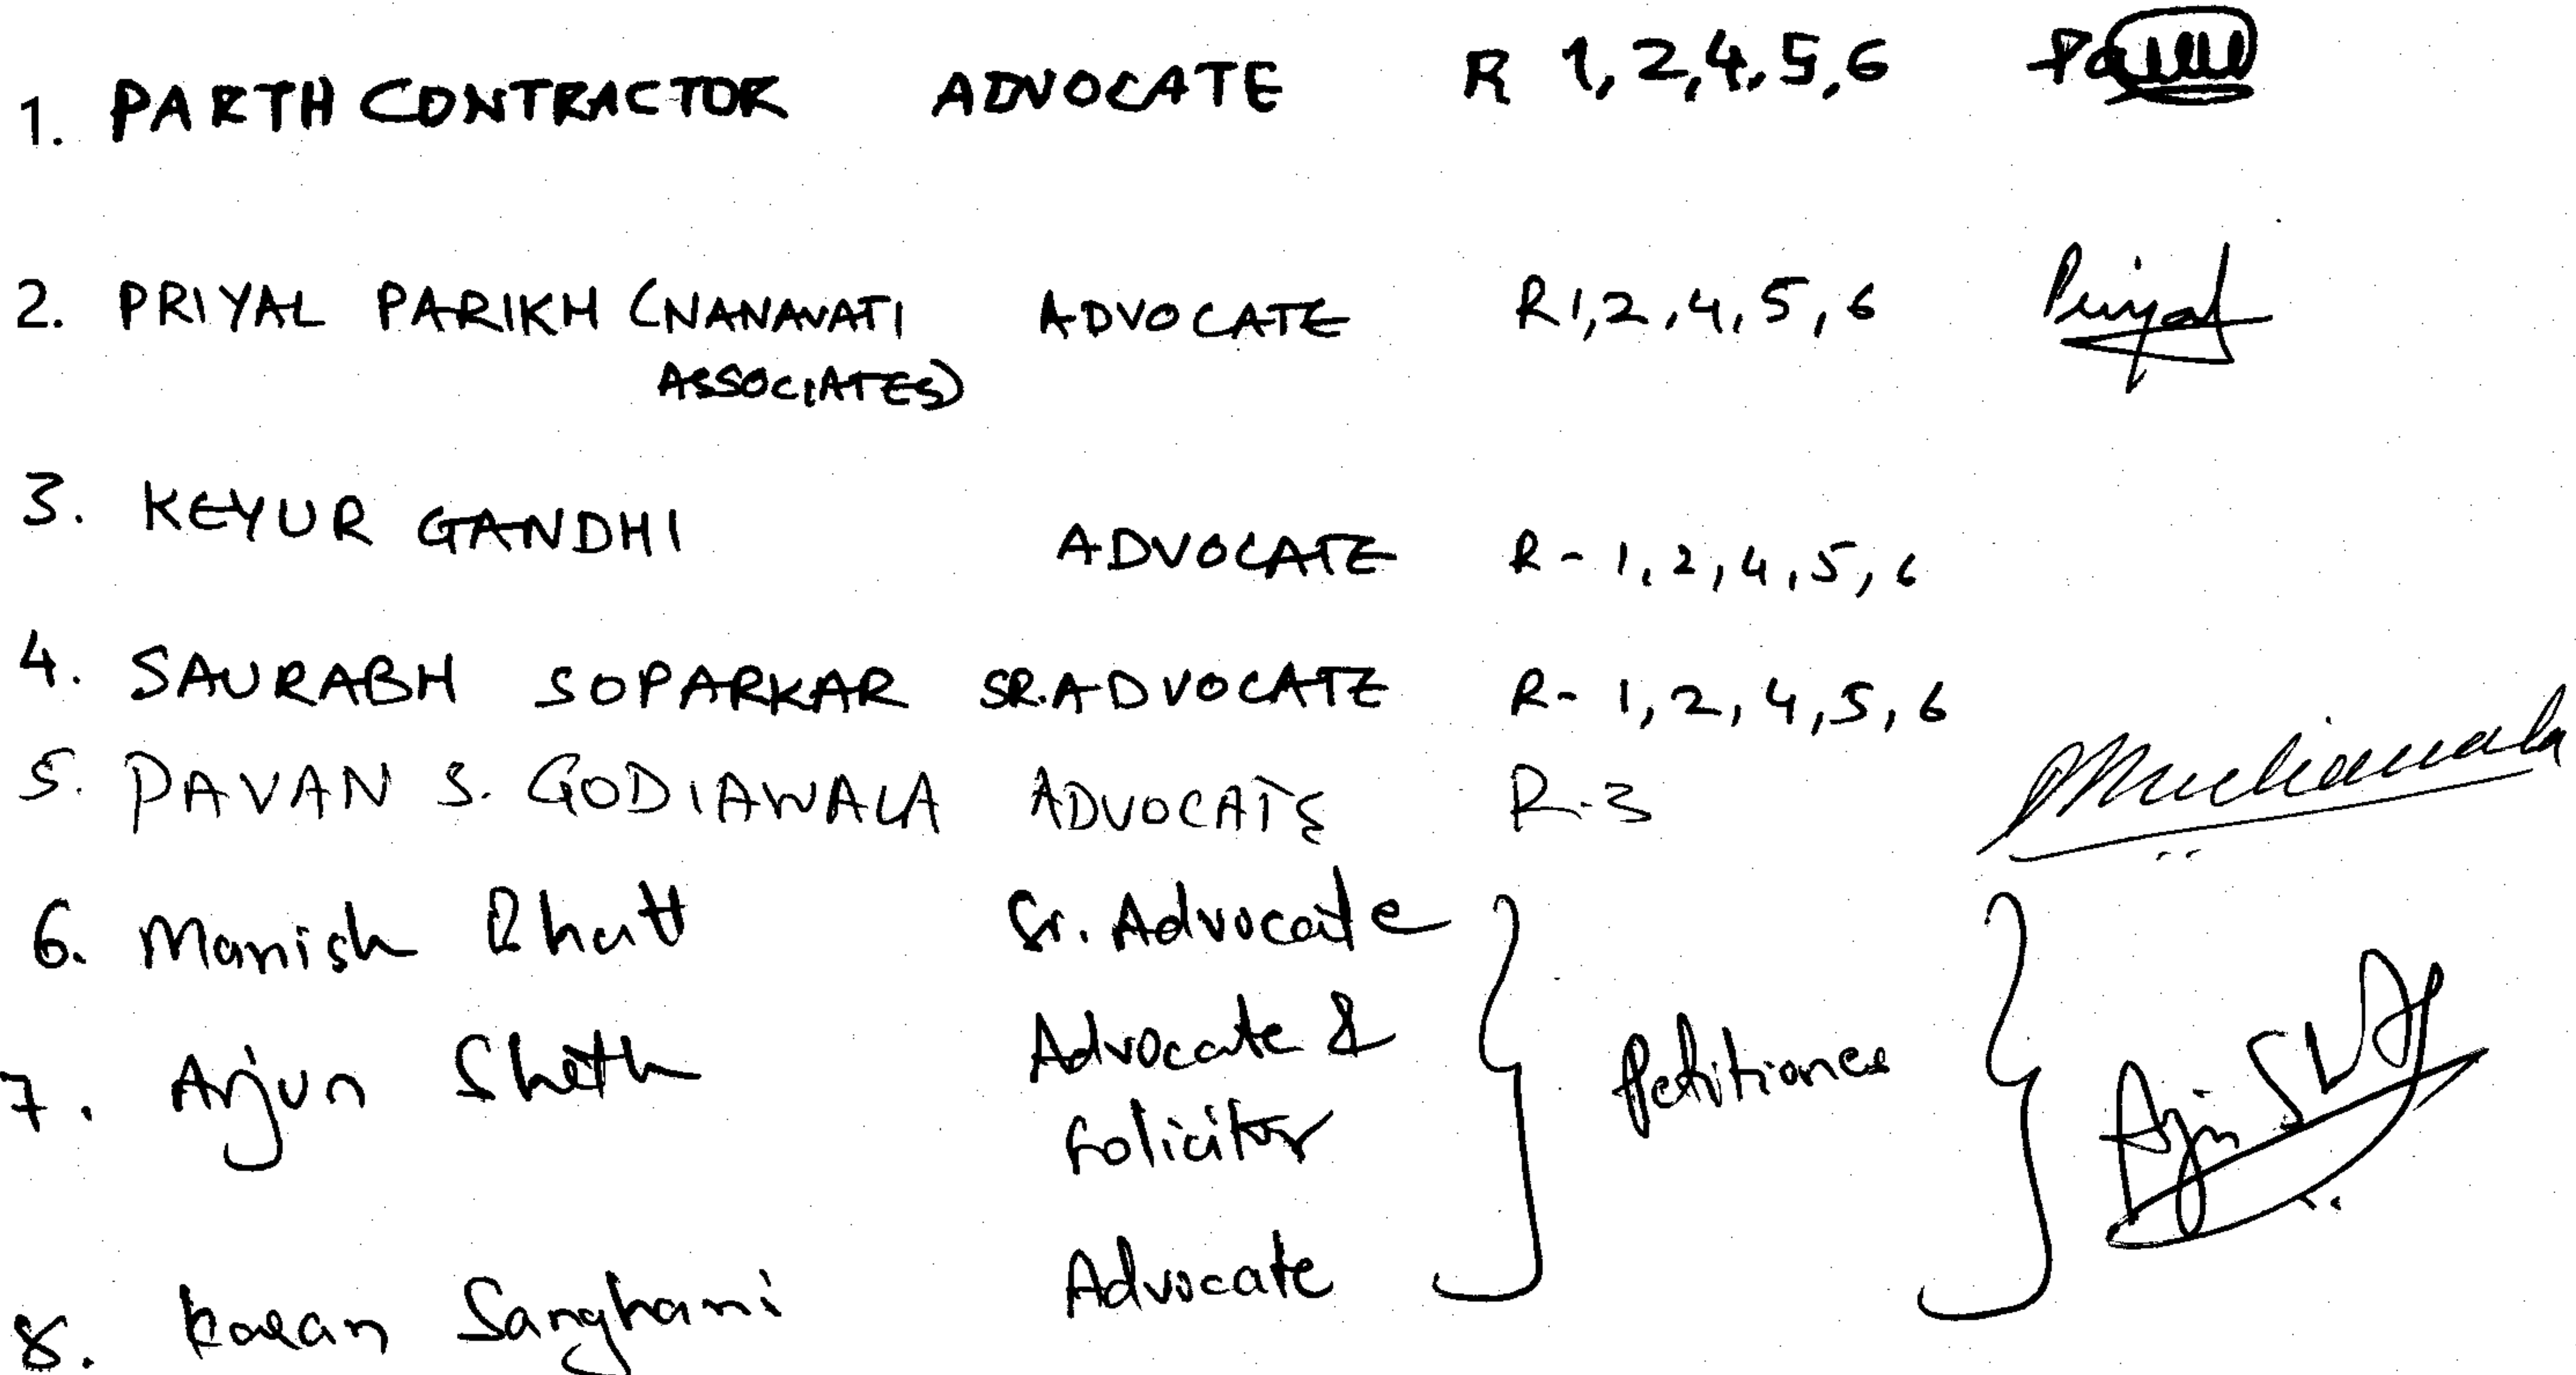 1. PARTH CONTRACTOR ADVOCATE R 1,2,4,5,6
2. PRIYAL PARIKH (NANAVATI ADVOCATE R 1,2,4,5,6 Priyal
ASSOCIATES)
3. KEYUR GANDHI ADVOCATE R - 1,2,4,5,6
4. SAURABH SOPARKAR SR.ADVOCATE R- 1,2,4,5,6
5. PAVAN S. GODIAWALA ADVOCATE R-3
6. Manish Bhatt Sr. Advocate
7. Arjun Sheth Advocate & Petitioner
Solicitor
8. Karan Sanghani Advocate